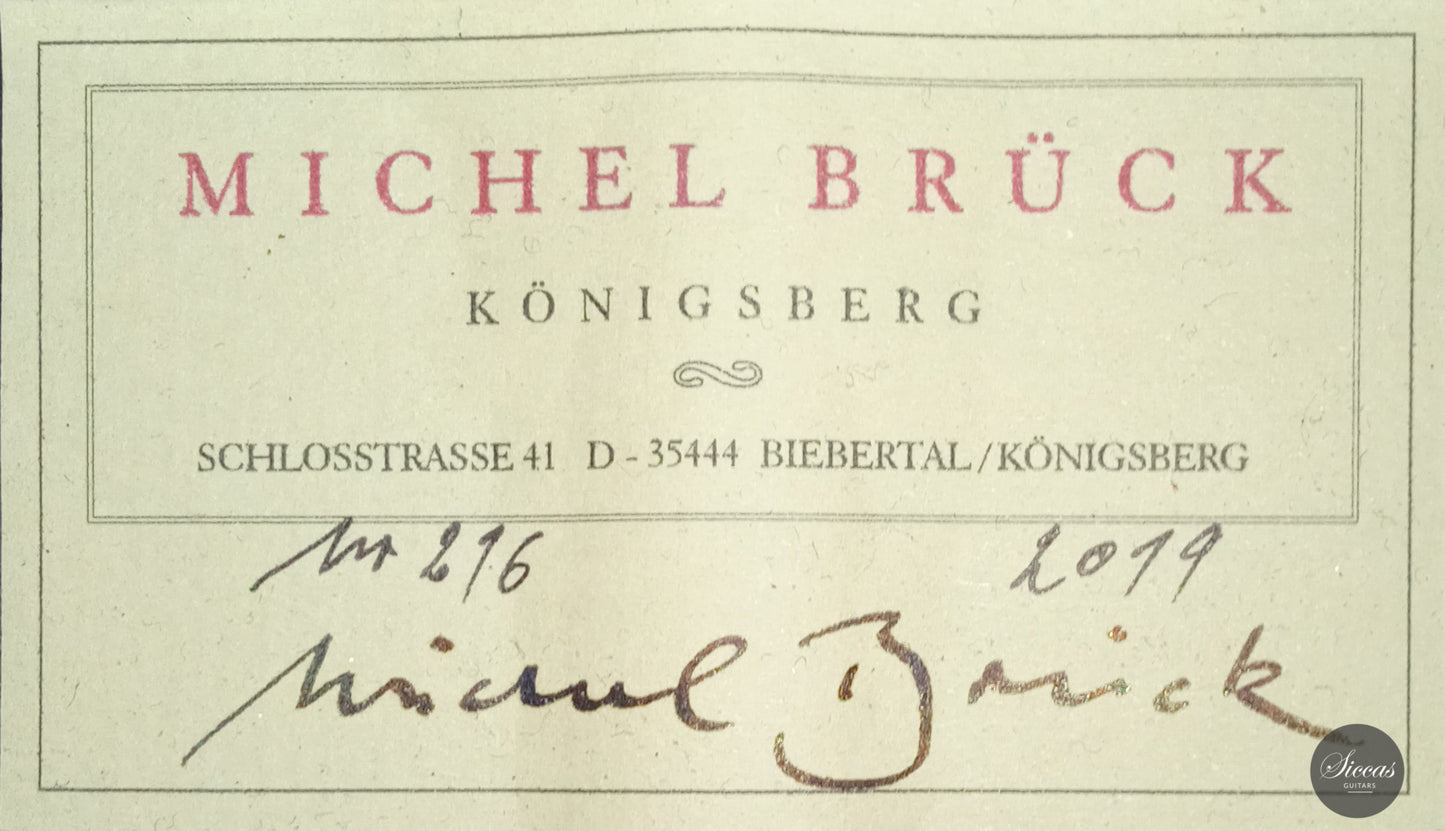 MICHEL BRÜCK
KÖNIGSBERG
SCHLOSSTRASSE 41 D - 35444 BIEBERTAL/KÖNIGSBERG
Nr 216 2019
Michel Brück
Siccas
GUITARS